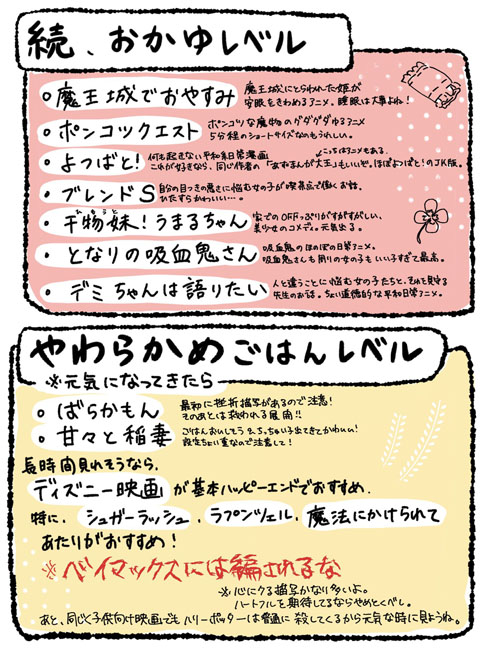 続、おかゆレベル
魔王城でおやすみ
魔王城にとらわれた姫が
安眠をきわめるアニメ。睡眠は大事よね!
ポンコツクエスト
ポンコツな魔物のグダグダゆるアニメ
5分程のショートサイズなのもうれしい。
よつばと!
何も起きない平和な日常漫画
こっちはアニメもある
これが好きなら、同じ作者の「あずまんが大王」もいいぞ。ほぼよつばと!のJK版。
ブレンドS
自分の目つきの悪さに悩む女の子が喫茶店で働くお話。
ひたすらかわいい…。
干物妹!うまるちゃん
うと
家でのOFFっぷりがすがすがしい、
美少女のコメディ。元気出る。
となりの吸血鬼さん
吸血鬼のほのぼの日常アニメ。
吸血鬼さんも周りの女の子もいい子すぎて最高。
デミちゃんは語りたい
人と違うことに悩む女の子たちと、それを見守る
先生のお話。ちょい道徳的な平和日常アニメ。
やわらかめごはんレベル
※元気になってきたら
ばらかもん
最初に挫折描写があるので注意!
そのあとは救われる展開!!
甘々と稲妻
ごはんおいしそう&ちっちゃい子出てきてかわいい!
設定ちょい重なので注意して!
長時間見れそうなら、
ディズニー映画が基本ハッピーエンドでおすすめ.
特に、シュガーラッシュ、ラプンツェル、魔法にかけられて
あたりがおすすめ!
※ベイマックスには騙されるな
※心にクる描写かなり多いよ。
ハートフルを期待してるならやめとくべし。
あと、同じく子供向け映画でもハリーポッターは普通に殺してくるから元気な時に見ようね。